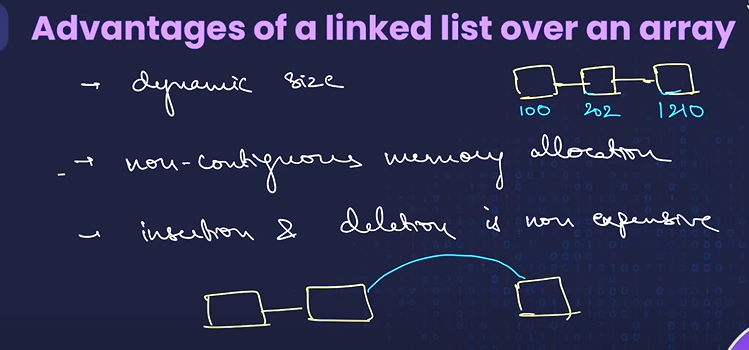 Advantages of a linked list over an array
→ dynamic size
100 202 1210
→ non-contiguous memory allocation
→ insertion & deletion is non expensive